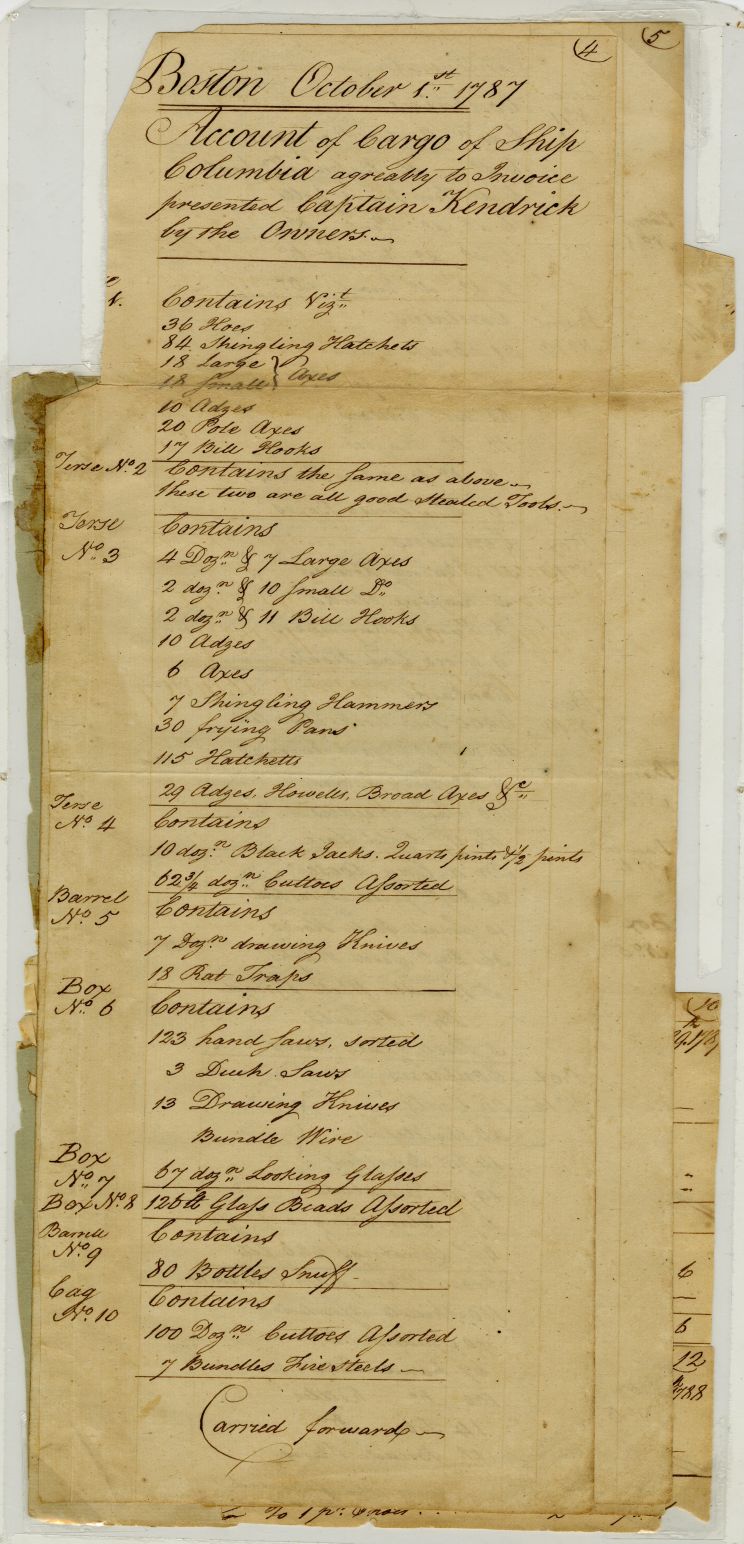 4
5
Boston October 1st. 1787
Account of Cargo of Ship
Columbia agreably to Invoice
presented Captain Kendrick
by the Owners.
1.
Contains Vizt
36 Hoes
84 Shingling Hatchets
18 Large } Axes
18 Small
10 Adzes
20 Pole Axes
17 Bill Hooks
Terse No. 2 Contains the same as above
these two are all good Stealed Tools.
Terse Contains
No. 3 4 Dozn & 7 Large Axes
2 dozn & 10 small Do
2 dozn & 11 Bill Hooks
10 Adzes
6 Axes
7 Shingling Hammers
30 frying Pans
115 Hatchetts
29 Adzes, Howells, Broad Axes &c
Terse Contains
No. 4
10 dozn Black Jacks. Quarts pints & 1/2 pints
62 3/4 dozn Cuttoes Assorted
Barrel Contains
No. 5
7 Dozn drawing Knives
18 Rat Traps
Box Contains
No. 6
123 hand saws, sorted
3 Duch Saws
13 Drawing Knives
Bundle Wire
Box
No. 7 67 dozn Looking Glasses
Box No. 8 126 lb Glass Beads Assorted
Barrell Contains
No. 9
80 Bottles Snuff
Cag Contains
No. 10
100 Dozn Cuttoes Assorted
7 Bundles Fire steels
Carried forward
10
6
6
12
1788
To 1 pr